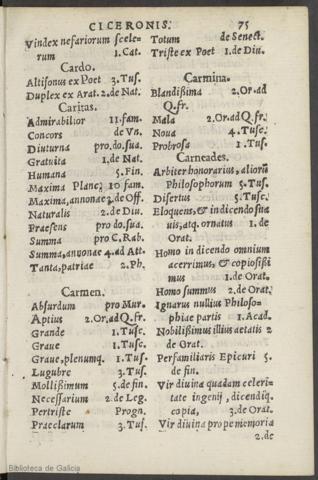 CICERONIS. 75
Vindex nefariorum scele-
rum 1. Cat.
Cardo.
Altisonus ex Poet 3. Tus.
Duplex ex Arat. 2. de Nat.
Caritas.
Admirabilior 11. fam.
Concors de Vn.
Diuturna pro. do. sua.
Gratuita 1. de Nat.
Humana 5. Fin.
Maxima Planc; 10 fam.
Maxima, annonae 3. de Off.
Naturalis 2. de Diu.
Praesens pro do. sua.
Summa pro C. Rab.
Summa, annonae 4. ad Att
Tanta, patriae 2. Ph.
Carmen.
Absurdum pro Mur.
Aptius 2. Or. ad Q. fr.
Grande 1. Tusc.
Graue 1. Tusc.
Graue, plenumq. 1. Tus.
Lugubre 3. Tus.
Mollißimum 5. de fin.
Necessarium 2. de Leg.
Pertriste Progn.
Praeclarum 3. Tus.
Totum de Senect.
Triste ex Poet 1. de Diu.
Carmina.
Blandißima 2. Or. ad
Q. fr.
Mala 2. Or. ad Q. fr.
Noua 4. Tusc.
Probrosa 1. Tus.
Carneades.
Arbiter honorarius, aliorū
Philosophorum 5. Tus.
Disertus 5. Tusc.
Eloquens, & in dicendo sua
uis, atq. ornatus 1. de
Orat.
Homo in dicendo omnium
acerrimus, & copiosißi
mus 1. de Orat.
Homo summus 2. de Orat.
Ignarus nullius Philoso-
phiae partis 1. Acad.
Nobilißimus illius aetatis 2
de Orat.
Perfamiliaris Epicuri 5.
de fin.
Vir diuina quadam celeri-
tate ingenij, dicendiq.
copia, 3. de Orat.
Vir diuina prope memoria
2. de
Biblioteca de Galicia